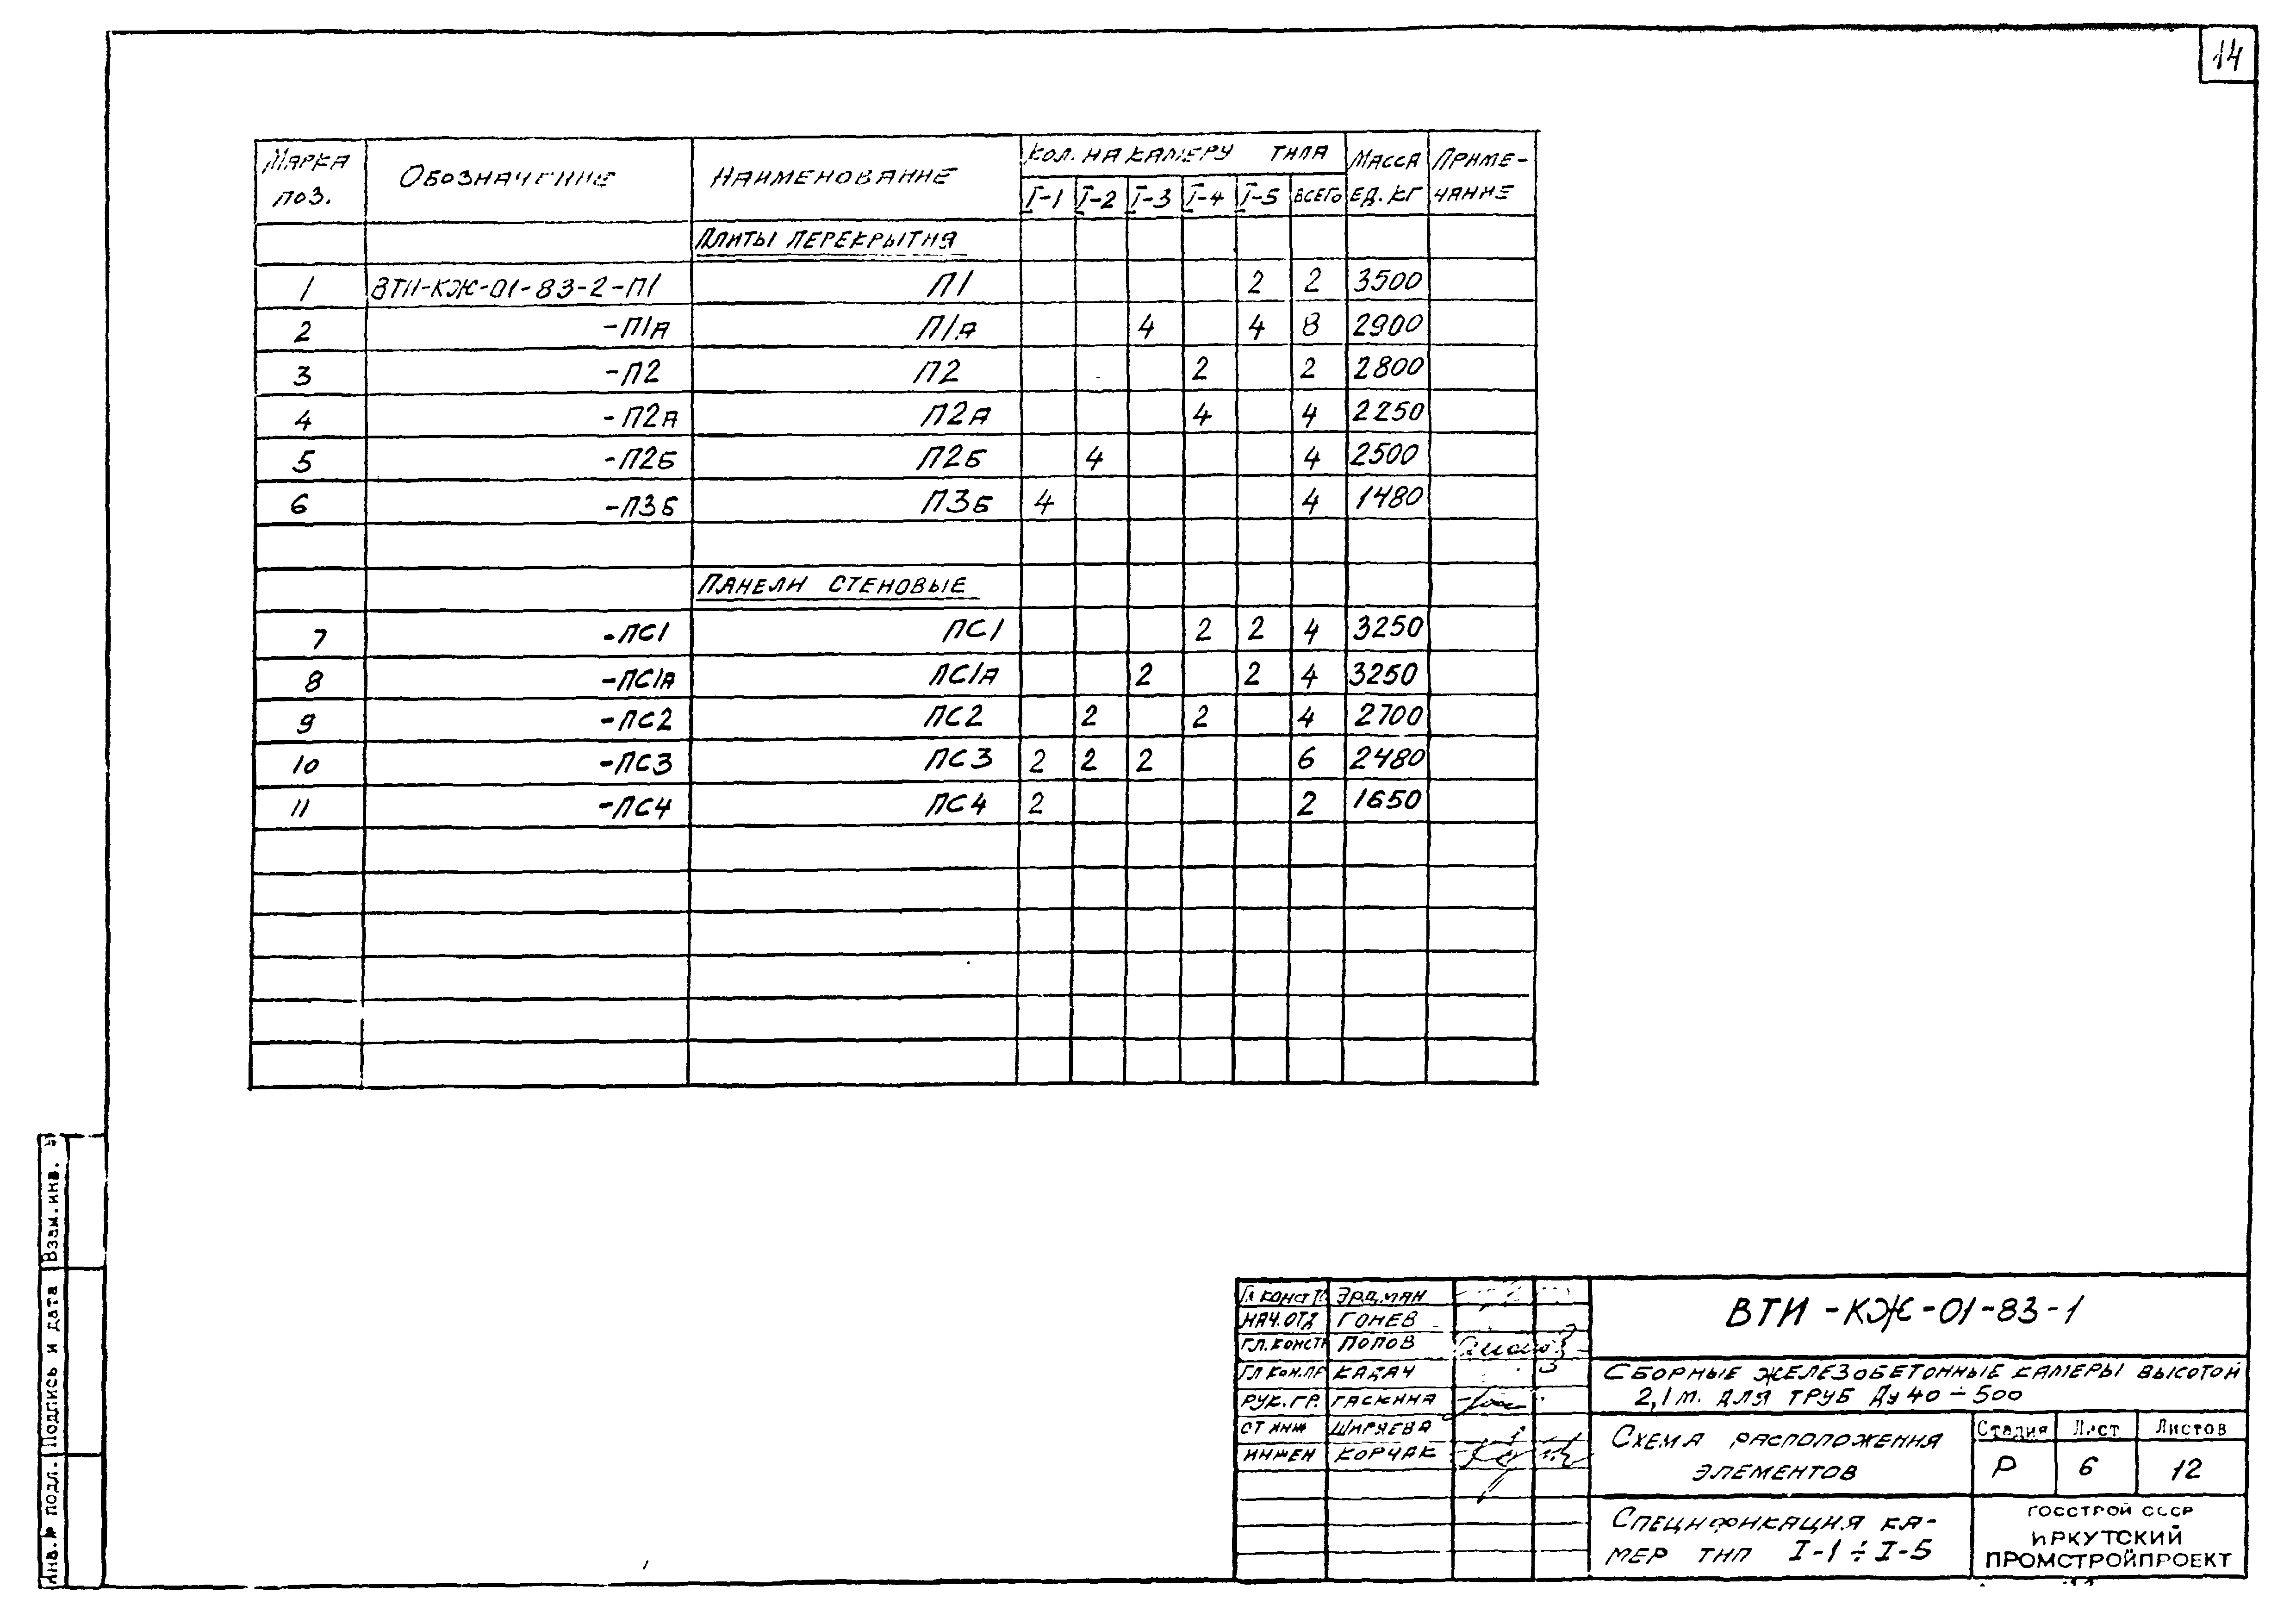 14
Марка поз. Обозначение Наименование Кол. на камеру типа Масса ед. кг Приме-чание
I-1 I-2 I-3 I-4 I-5 всего
Плиты перекрытия
1 ВТИ-КЖ-01-83-2-П1 П1 2 2 3500
2 -П1А П1А 4 4 8 2900
3 -П2 П2 2 2 2800
4 -П2А П2А 4 4 2250
5 -П2Б П2Б 4 4 2500
6 -П3Б П3Б 4 4 1480
Панели стеновые
7 -ПС1 ПС1 2 2 4 3250
8 -ПС1А ПС1А 2 2 4 3250
9 -ПС2 ПС2 2 2 4 2700
10 -ПС3 ПС3 2 2 2 6 2480
11 -ПС4 ПС4 2 2 1650
Взам.инв.
Подпись и дата
Инв.№ подл.
Гл конст Эрдман
Нач.отд Гонев
Гл.констр Попов
Гл кон.пр Кадач
Рук.гр. Гаскина
Ст инж Ширяева
Инжен Корчак
ВТИ-КЖ-01-83-1
Сборные железобетонные камеры высотой
2,1 м. для труб Ду 40÷500
Схема расположения
элементов
Стадия Лист Листов
Р 6 12
Спецификация ка-
мер тип I-1÷I-5
ГОССТРОЙ СССР
ИРКУТСКИЙ
ПРОМСТРОЙПРОЕКТ